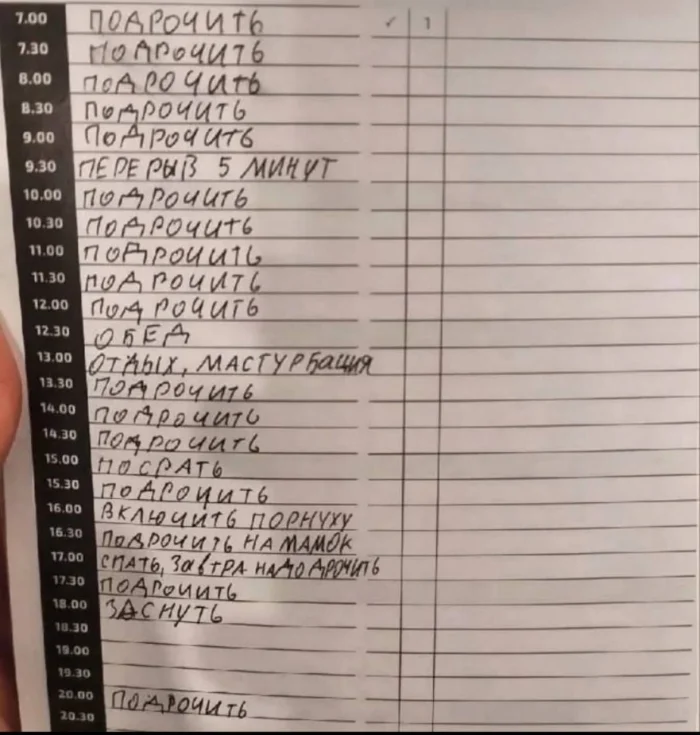 7.00 ПОДРОЧИТЬ ✓ 1
7.30 ПОДРОЧИТЬ
8.00 ПОДРОЧИТЬ
8.30 ПОДРОЧИТЬ
9.00 ПОДРОЧИТЬ
9.30 ПЕРЕРЫВ 5 МИНУТ
10.00 ПОДРОЧИТЬ
10.30 ПОДРОЧИТЬ
11.00 ПОДРОЧИТЬ
11.30 ПОДРОЧИТЬ
12.00 ПОДРОЧИТЬ
12.30 ОБЕД
13.00 ОТДЫХ, МАСТУРБАЦИЯ
13.30 ПОДРОЧИТЬ
14.00 ПОДРОЧИТЬ
14.30 ПОДРОЧИТЬ
15.00 ПОСРАТЬ
15.30 ПОДРОЧИТЬ
16.00 ВКЛЮЧИТЬ ПОРНУХУ
16.30 ПОДРОЧИТЬ НА МАМОК
17.00 СПАТЬ, ЗАВТРА НАДО ДРОЧИТЬ
17.30 ПОДРОЧИТЬ
18.00 ЗАСНУТЬ
18.30
19.00
19.30
20.00 ПОДРОЧИТЬ
20.30